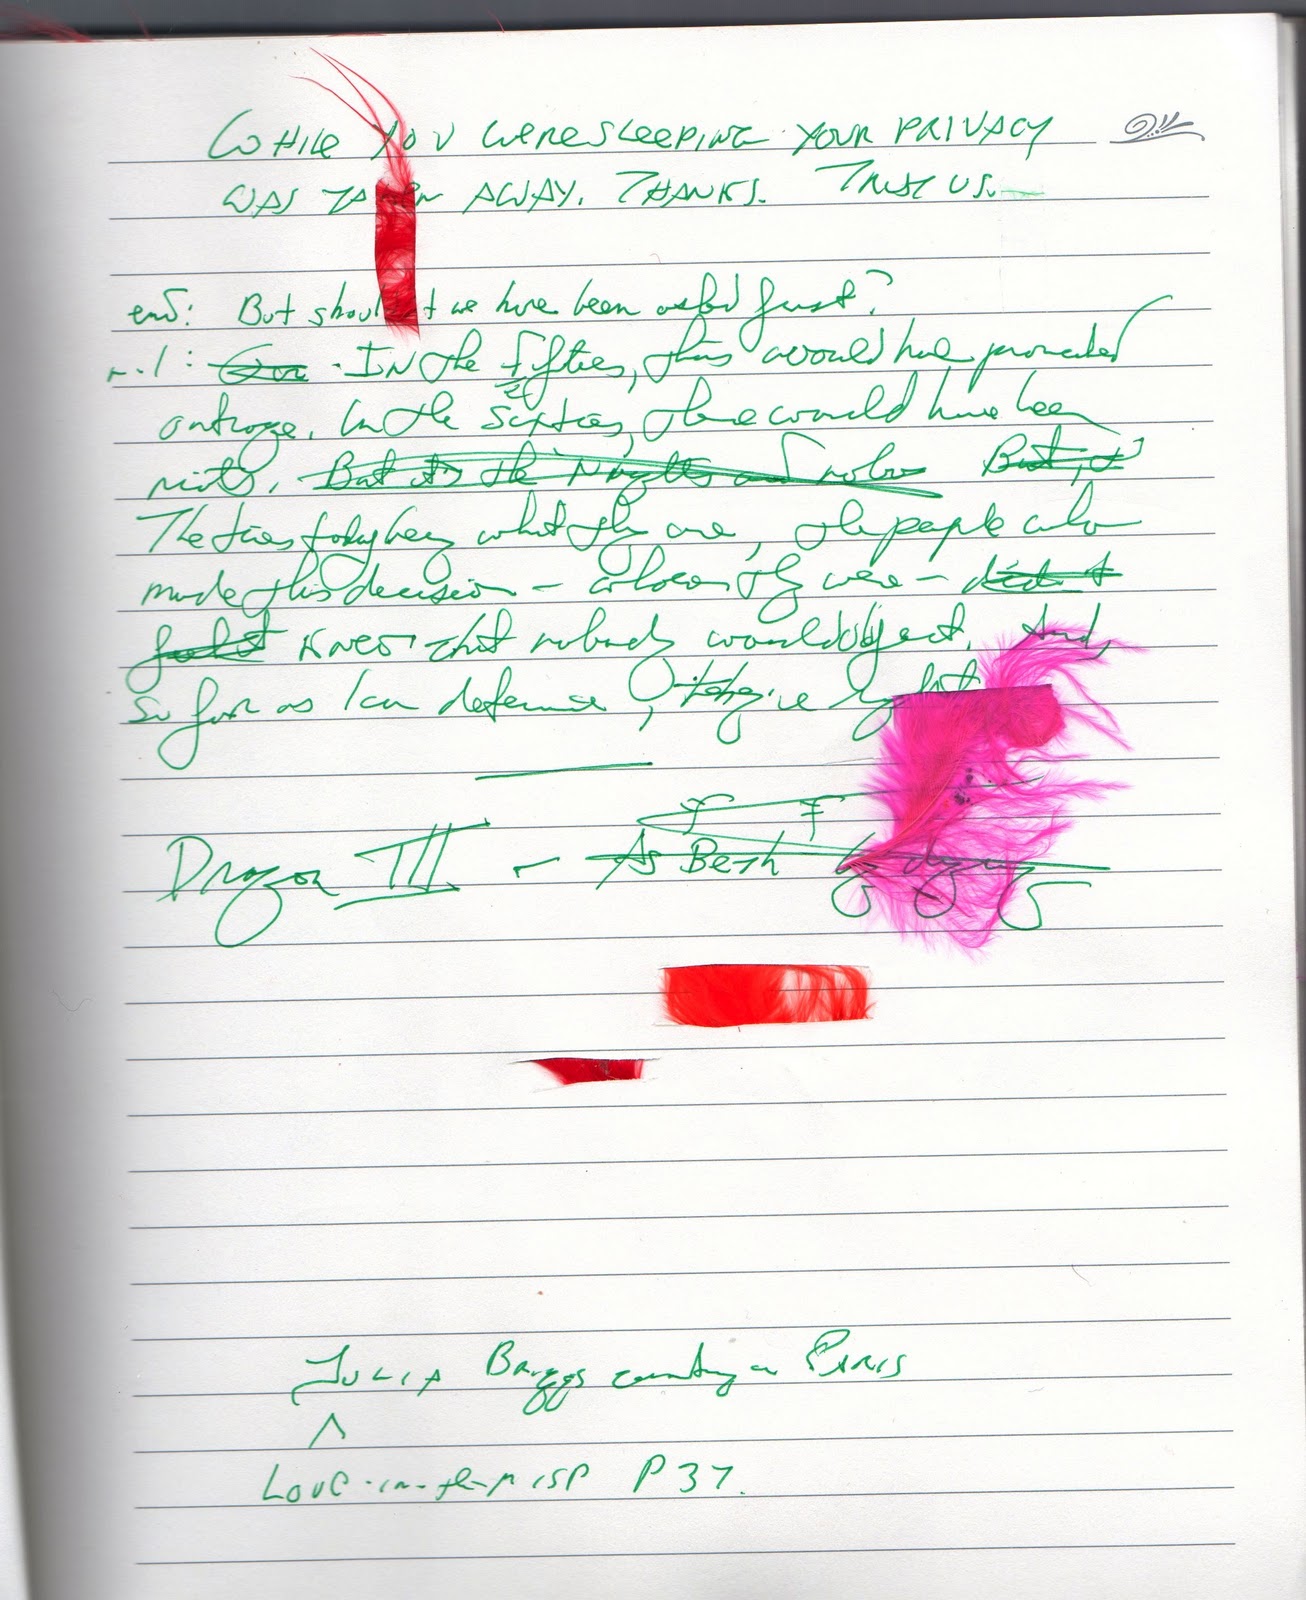 WHILE YOU WERE SLEEPING YOUR PRIVACY
WAS TAKEN AWAY. THANKS. TRUST US.
end: But shouldn't we have been asked first?
In the fifties, this would have provoked
outrage. In the Sixties, there would have been
riots. But it's the Nineties and
The times today being what they are, the people who
made this decision – whoever they were – didn't
knew that nobody would object. And,
so far as I can determine, they're right
Dragon III – As Beth
Julia Briggs counting on Paris
^
Love-in-the-mist P 37.